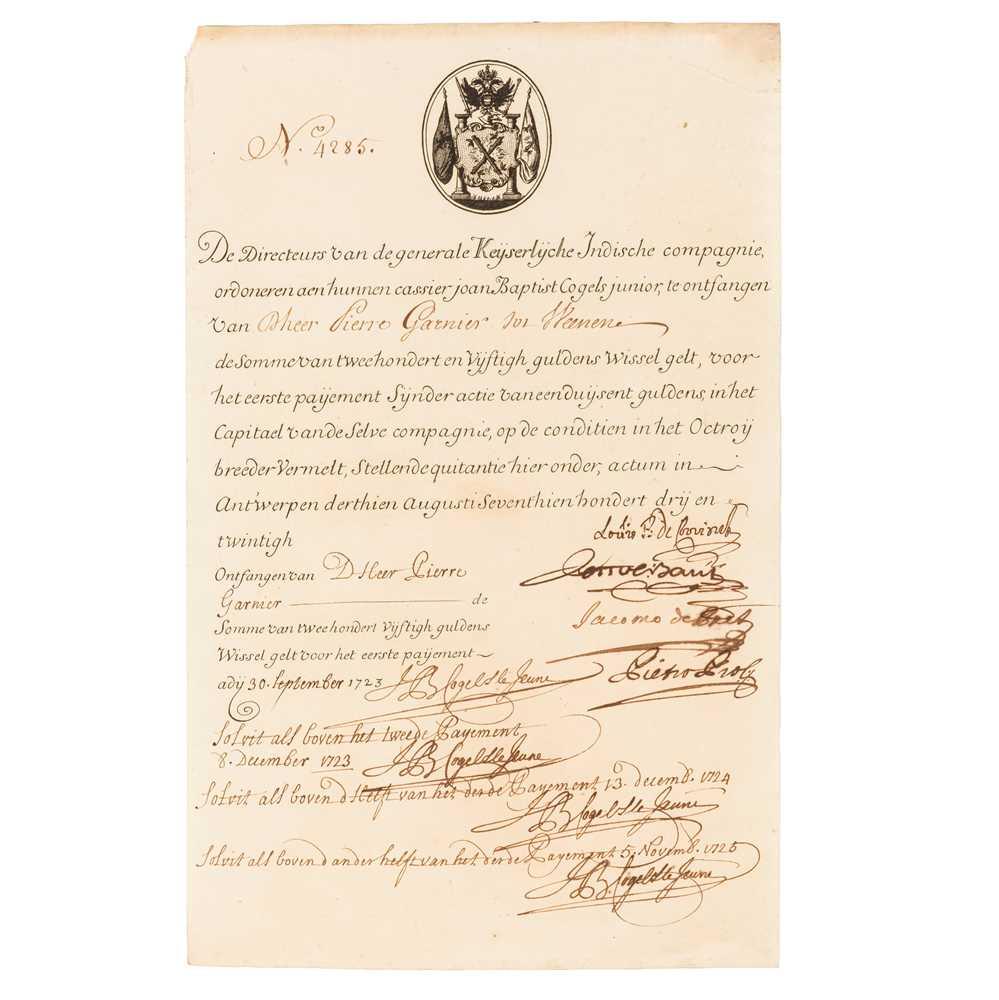 No. 4285.
De Directeurs van de generale Keyserlyche Indische compagnie,
ordoneren aen hunnen cassier joan Baptist Cogels junior, te ontfangen
van Dheer Pierre Garnier tot Weenen
de Somme van tweehondert en Vijftigh guldens Wissel gelt, voor
het eerste paijement Sijnder actie van eenduijsent guldens, in het
Capitael van de Selve compagnie, op de conditien in het Octroij
breeder Vermelt, Stellende quitantie hier onder, actum in
Antwerpen derthien Augusti Seventhien hondert drij en
twintigh
Louis F. de Coninck
Jacomo de Pret
Pietro Proli
Ontfangen van D Heer Pierre
Garnier de
Somme van tweehondert Vijftigh guldens
Wissel gelt voor het eerste paijement
adij 30. September 1723 J B Cogels le Jeune
Solvit als boven het tweede Payement
8. December 1723 J B Cogels le Jeune
Solvit als boven d helft van het derde Payement 13. decemb. 1724
J B Cogels le Jeune
Solvit als boven d ander helft van het derde Payement 5. Novemb. 1725
J B Cogels le Jeune